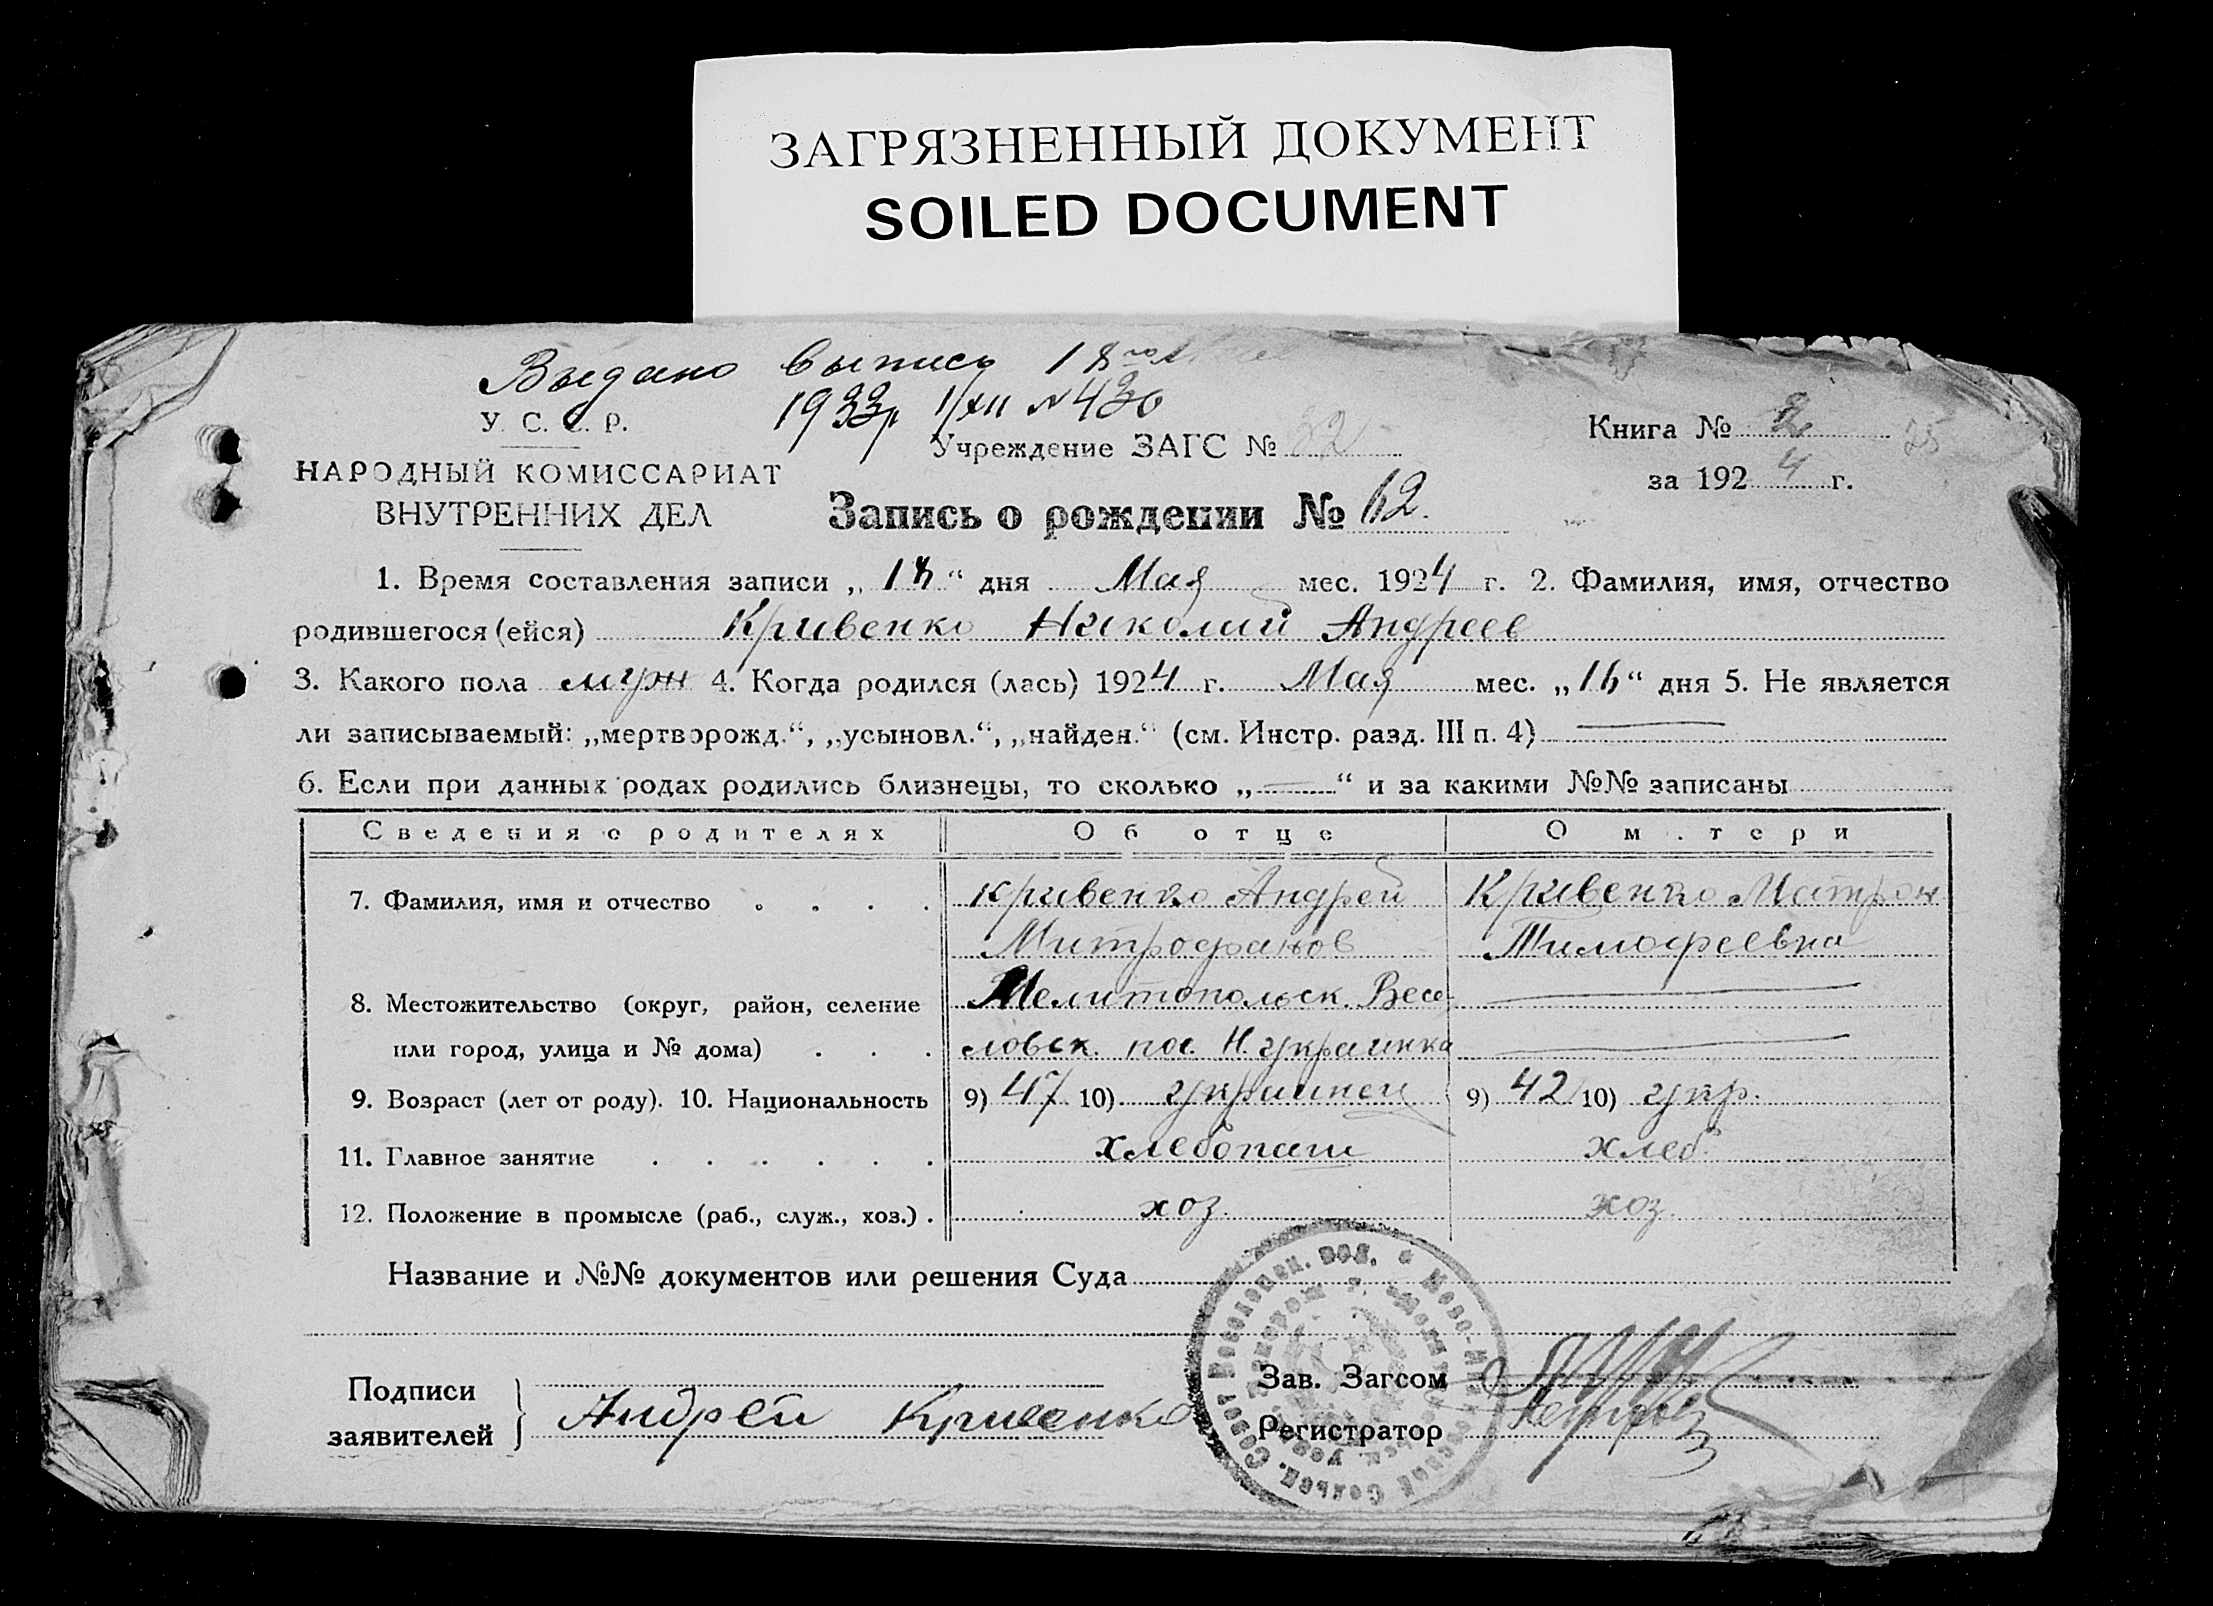 ЗАГРЯЗНЕННЫЙ ДОКУМЕНТ
SOILED DOCUMENT
Выдано выпись 18
1933г 1/XII № 430
У. С. С. Р.
Учреждение ЗАГС №
Книга № 2
НАРОДНЫЙ КОМИССАРИАТ
ВНУТРЕННИХ ДЕЛ
за 1924 г.
Запись о рождении № 62.
1. Время составления записи „ “ дня Мая мес. 1924 г. 2. Фамилия, имя, отчество
родившегося (ейся) Кривенко Николай Андреев
3. Какого пола муж 4. Когда родился (лась) 1924 г. Мая мес. „16“ дня 5. Не является
ли записываемый: „мертворожд.“, „усыновл.“, „найден.“ (см. Инстр. разд. III п. 4)
6. Если при данных родах родились близнецы, то сколько „ “ и за какими №№ записаны
Сведения о родителях Об отце О матери
7. Фамилия, имя и отчество Кривенко Андрей Кривенко Матрон
Митрофанов Тимофеевна
8. Местожительство (округ, район, селение Мелитопольск. Весе-
или город, улица и № дома) ловск. пос. Н. украинка
9. Возраст (лет от роду). 10. Национальность 9) 47 10) украинец 9) 42 10) укр.
11. Главное занятие хлебопаш хлеб
12. Положение в промысле (раб., служ., хоз.) хоз. хоз.
Название и №№ документов или решения Суда
Подписи
заявителей
Андрей Кривенко
Зав. Загсом
Регистратор